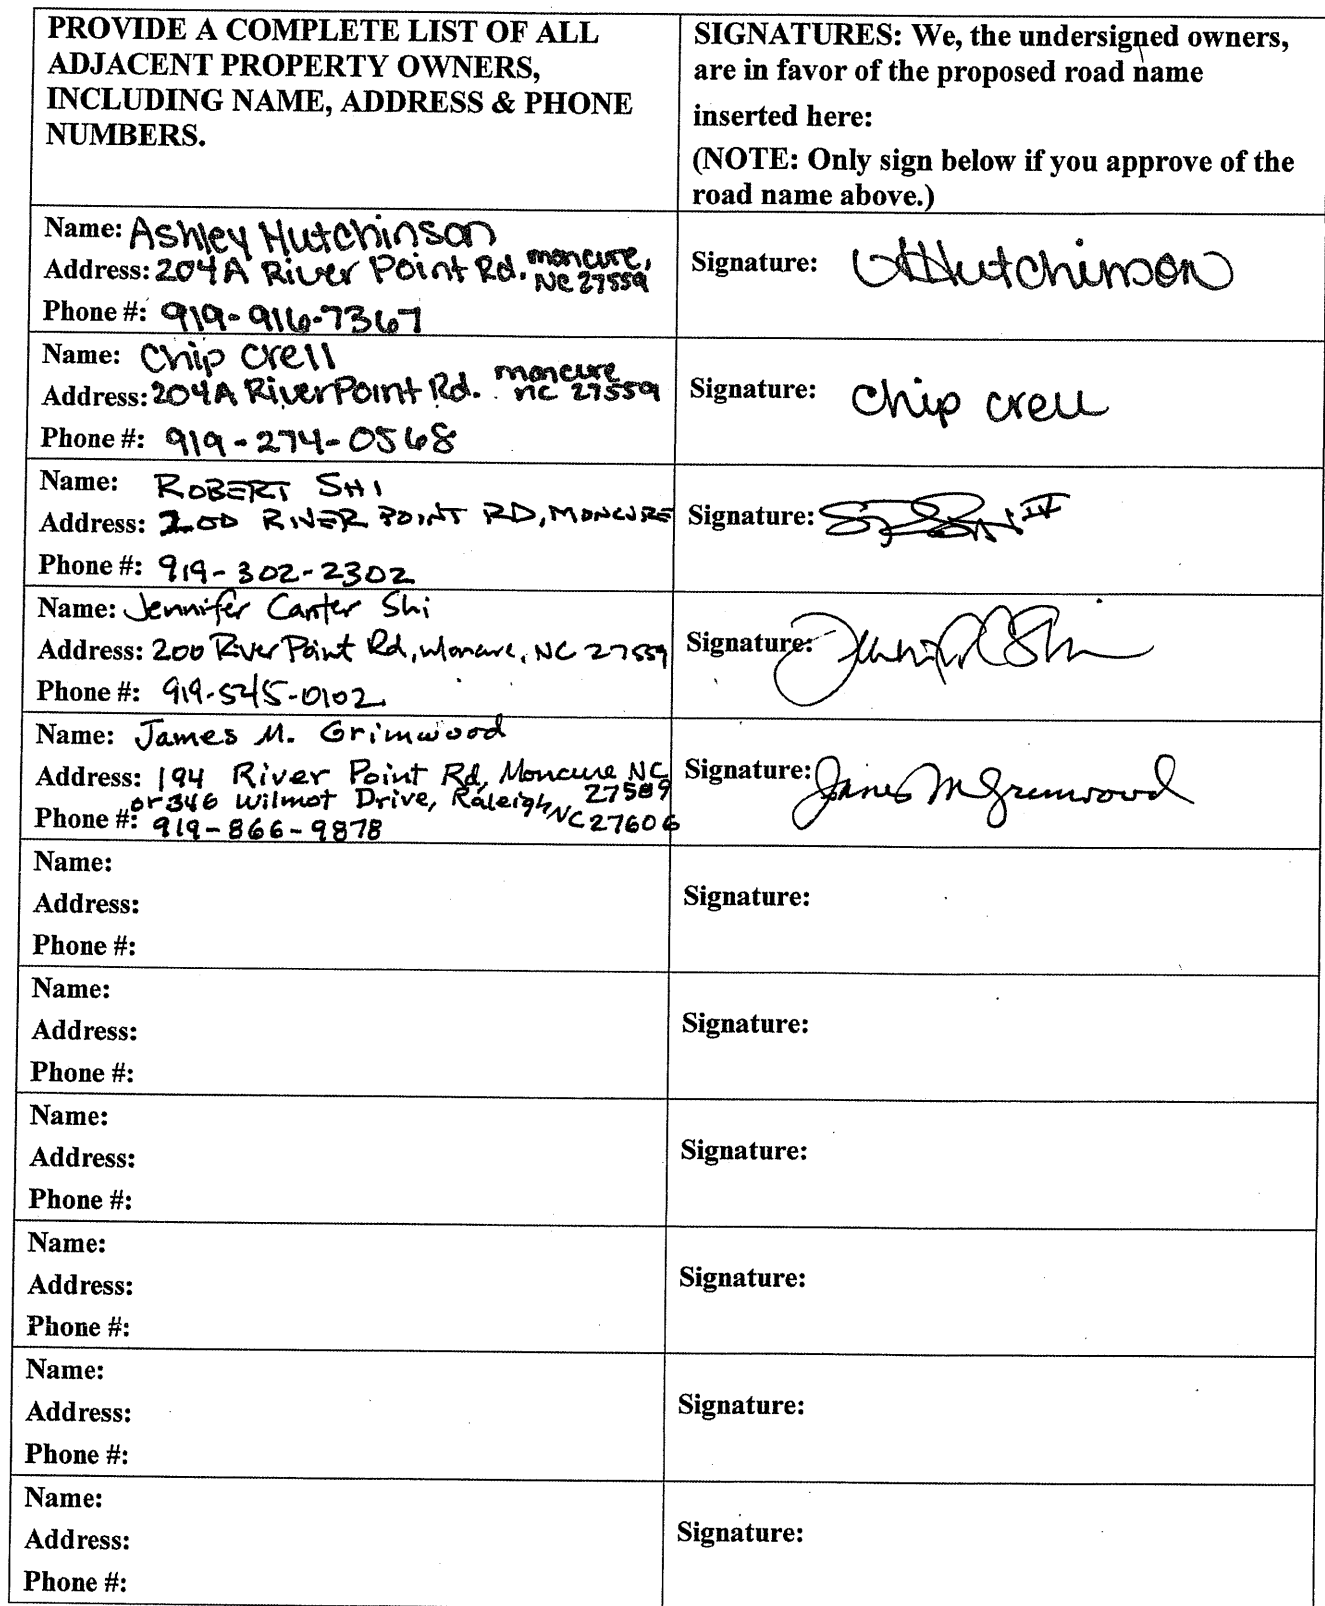 PROVIDE A COMPLETE LIST OF ALL
ADJACENT PROPERTY OWNERS,
INCLUDING NAME, ADDRESS & PHONE
NUMBERS.
SIGNATURES: We, the undersigned owners,
are in favor of the proposed road name
inserted here:
(NOTE: Only sign below if you approve of the
road name above.)
Name: Ashley Hutchinson
Address: 204A River Point Rd. moncure,
NC 27559
Phone #: 919-916-7367
Signature: AHutchinson
Name: Chip Crell
Address: 204A River Point Rd. moncure
nc 27559
Phone #: 919-274-0568
Signature: Chip crell
Name: ROBERT SHI
Address: 200 RIVER POINT RD, MONCURE
Phone #: 919-302-2302
Signature: IV
Name: Jennifer Canter Shi
Address: 200 River Point Rd, Moncure, NC 27559
Phone #: 919-545-0102
Signature: Jennifer C Shi
Name: James M. Grimwood
Address: 194 River Point Rd, Moncure NC
27589
or 346 Wilmot Drive, Raleigh, NC 27606
Phone #: 919-866-9878
Signature: James M Grimwood
Name:
Address:
Phone #:
Signature:
Name:
Address:
Phone #:
Signature:
Name:
Address:
Phone #:
Signature:
Name:
Address:
Phone #:
Signature:
Name:
Address:
Phone #:
Signature:
Name:
Address:
Phone #:
Signature: